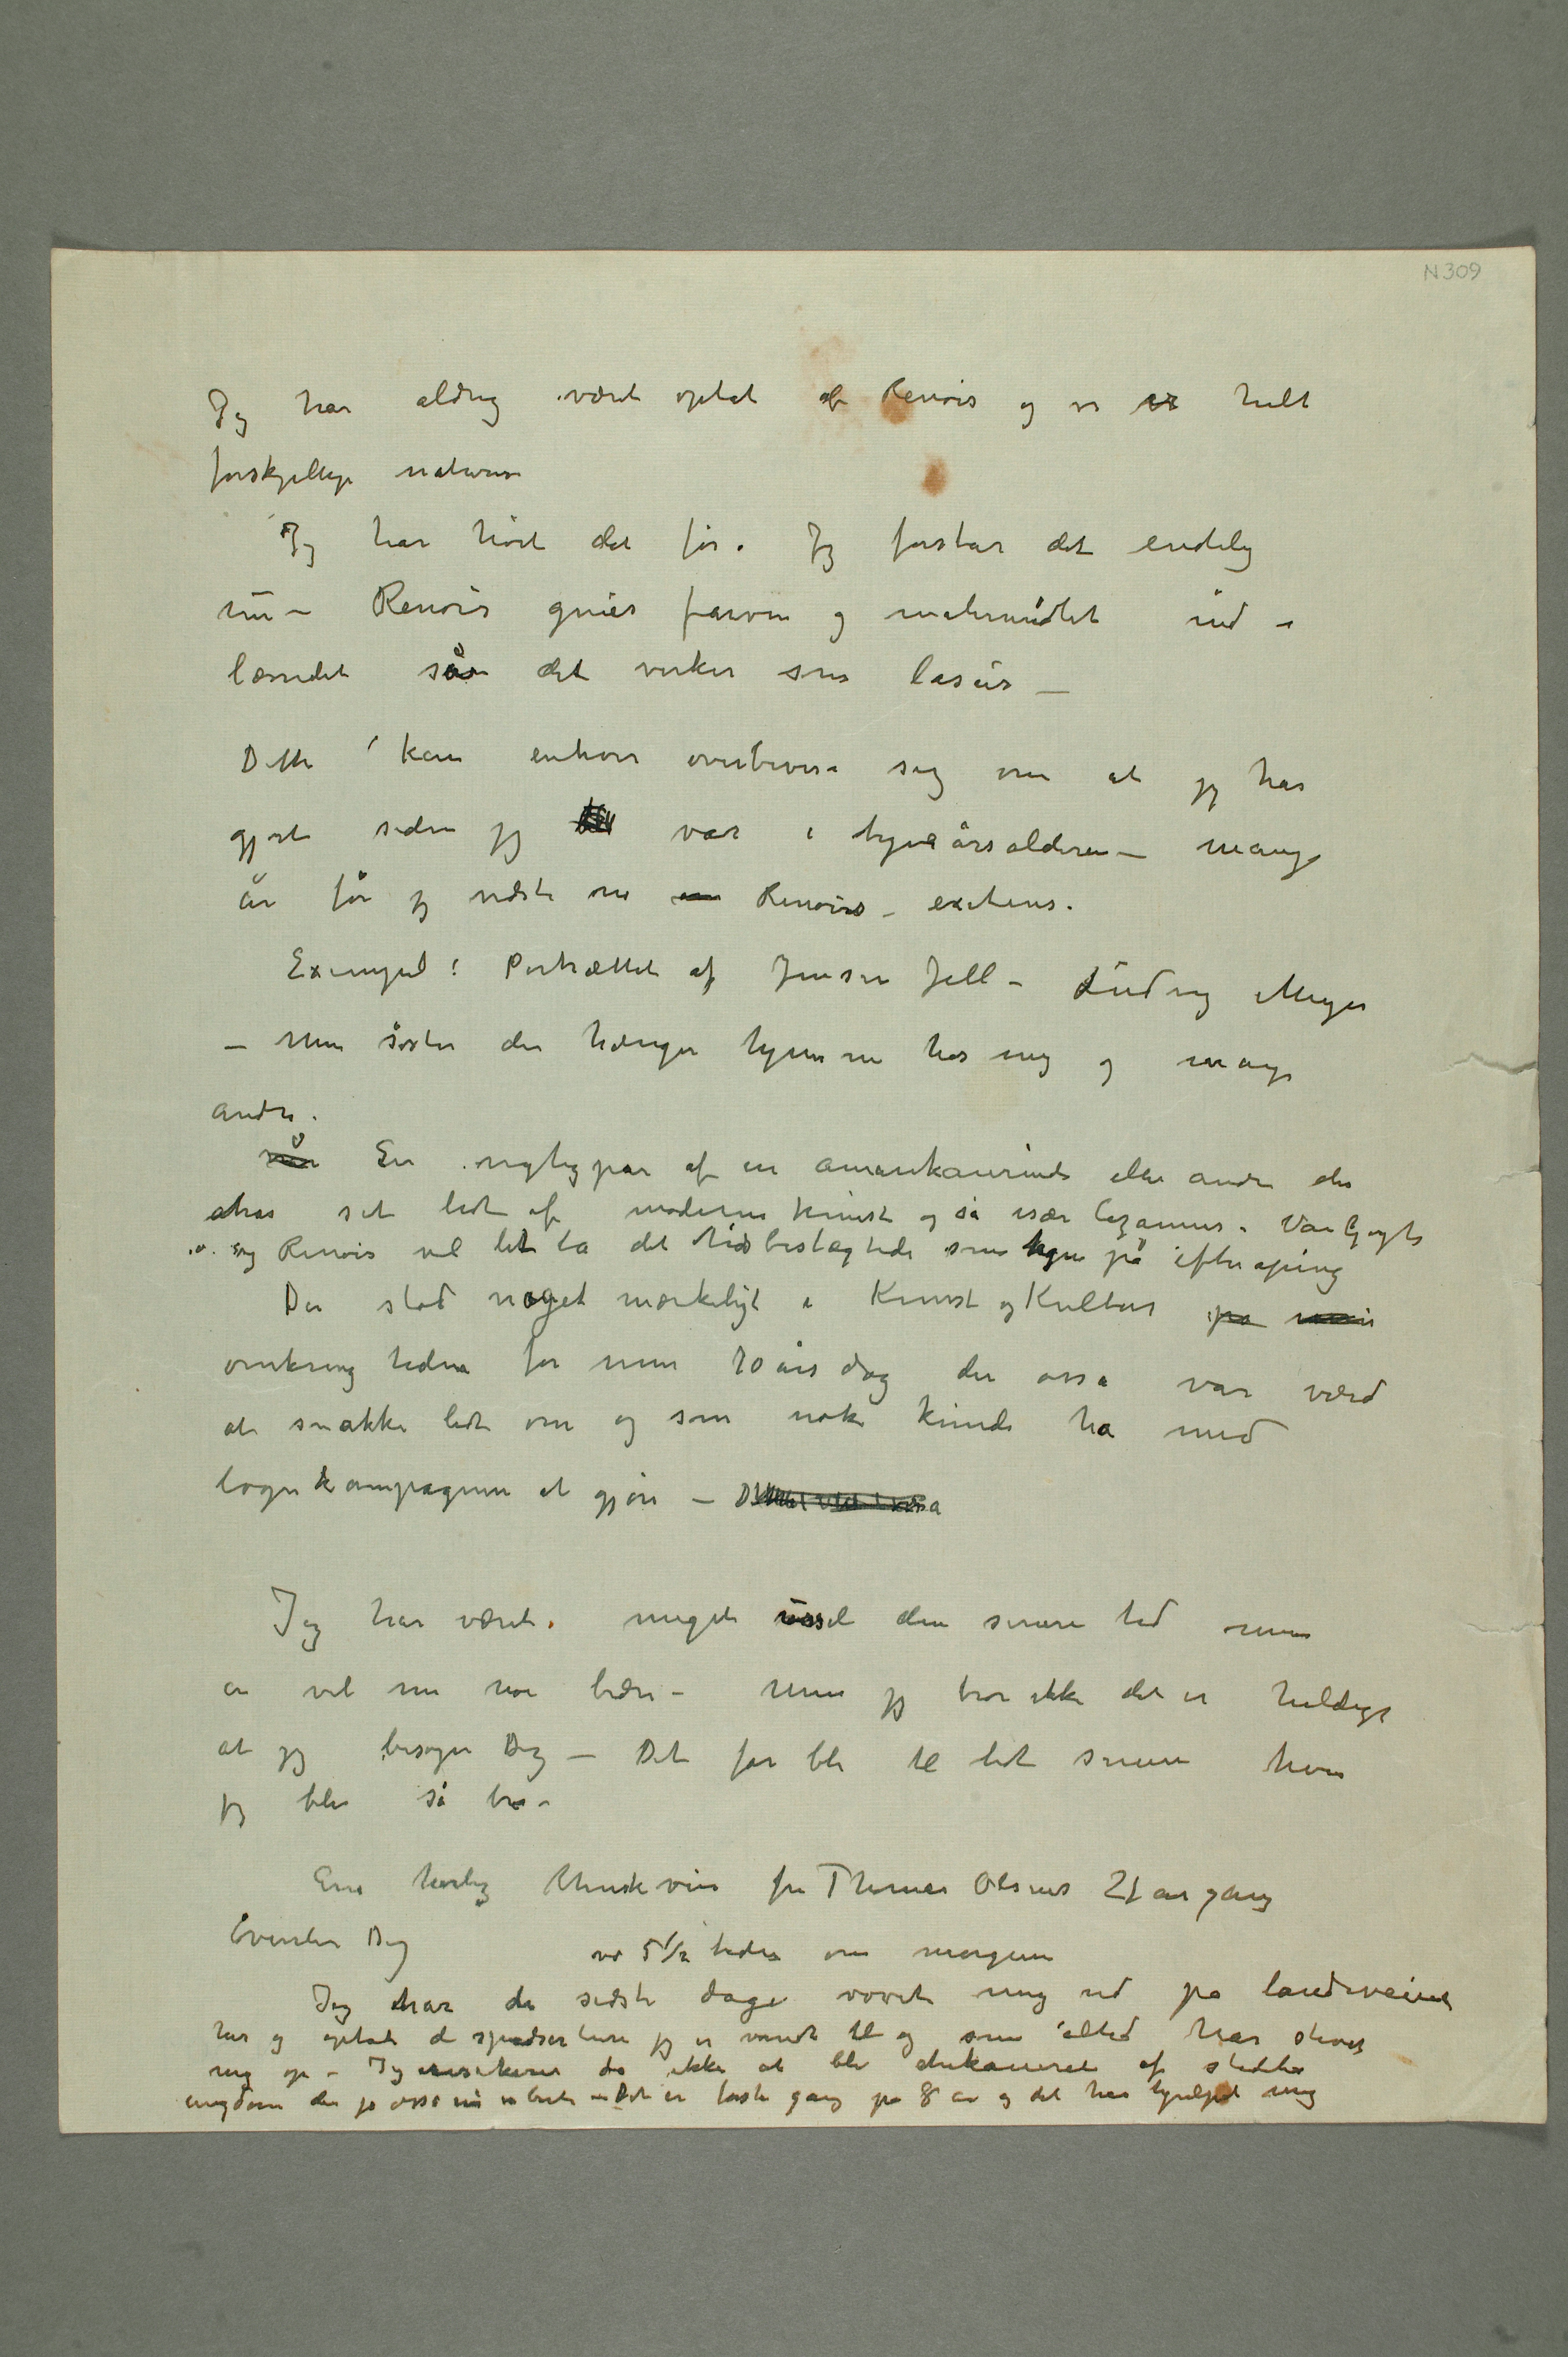 N 309
Jeg har aldrig været optat af Renoir og vi er helt
forskjellige naturer
Jeg har hørt det før. Jeg forstår det endelig
nu – Renoir gnier farven og malemidlet ind i
lærredet så det virker som lasur –
Dette kan enhver overbevise sig om at jeg har
gjort siden jeg var i tyveårsalderen – mange
år før jeg vidste om Renoirs existens.
Exempel: Portrættet af Jensen Jell – Ludvig Meyer
– Min søster der hænger hjemme hos mig og mange
andre.
En rigtig par af en amerikanerinde eller andre der
har set lidt af moderne kunst og så især Cezannes. Van Goghs
og Renoir vil let ta det tidsbeslægtede som tegn på efteraping
Der stod noget mærkeligt i Kunst og Kultur
omkring tiden for min 70 års dag der osså var værd
at snakke lidt om og som nok kunde ha med
løgnkampagnen at gjøre –
Jeg har været meget ussel den senere tid men
er vel nu noe bedre – Men jeg tror ikke det er heldigt
at jeg besøger Dig – Det får bli til lidt senere hvis
jeg blir så bra –
En herlig Munkvin fra Thomas Olsens 21 årgang
venter Dig
vd 5 1/2 tiden om morgenen
Jeg har de sidste dage vovet mig ud på landeveiene
her og optat de spadserture jeg er vandt til og som altid har stivet
mig op – Jeg risikerer da ikke at bli chikaneret af stedets
ungdom der jo osså nu er borte – Det er første gang på 8 år og det har hjulpet mig